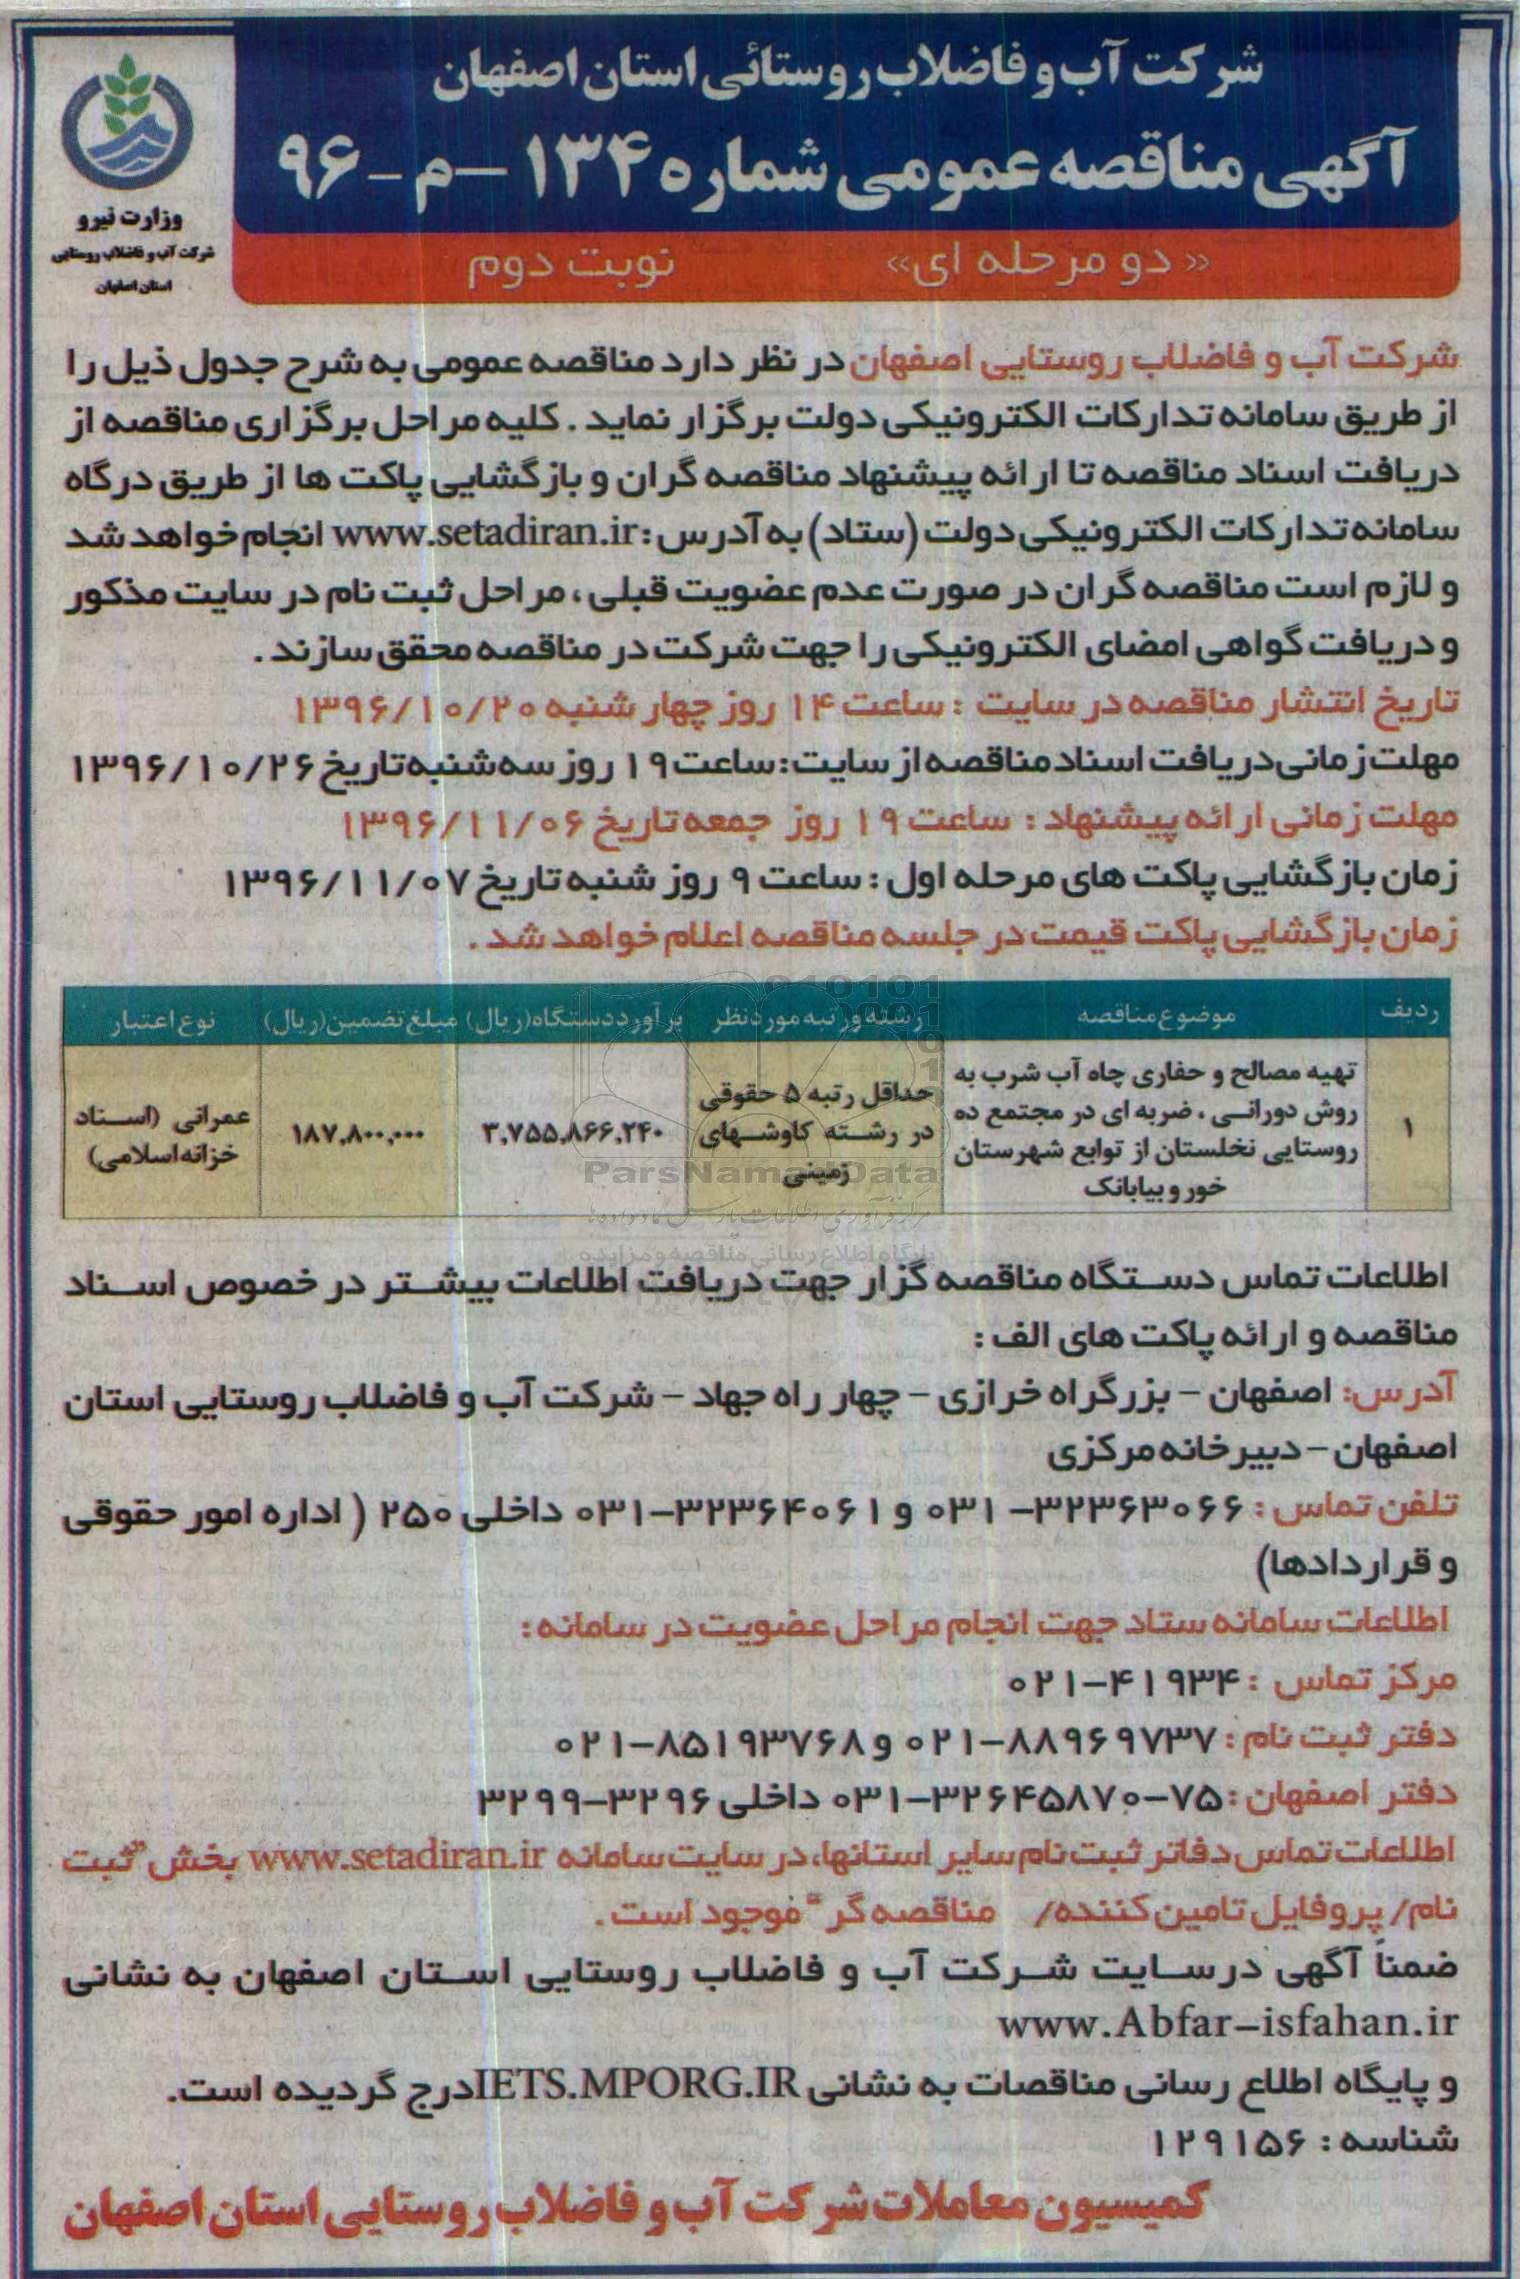 شرکت آب و فاضلاب روستائی استان اصفهان
آگهی مناقصه عمومی شماره ۱۳۴ - م - ۹۶
«دو مرحله ای» نوبت دوم
وزارت نیرو
شرکت آب و فاضلاب روستایی
استان اصفهان
شرکت آب و فاضلاب روستایی اصفهان در نظر دارد مناقصه عمومی به شرح جدول ذیل را
از طریق سامانه تدارکات الکترونیکی دولت برگزار نماید . کلیه مراحل برگزاری مناقصه از
دریافت اسناد مناقصه تا ارائه پیشنهاد مناقصه گران و بازگشایی پاکت ها از طریق درگاه
سامانه تدارکات الکترونیکی دولت (ستاد) به آدرس : www.setadiran.ir انجام خواهد شد
و لازم است مناقصه گران در صورت عدم عضویت قبلی ، مراحل ثبت نام در سایت مذکور
و دریافت گواهی امضای الکترونیکی را جهت شرکت در مناقصه محقق سازند .
تاریخ انتشار مناقصه در سایت : ساعت ۱۴ روز چهار شنبه ۱۳۹۶/۱۰/۲۰
مهلت زمانی دریافت اسناد مناقصه از سایت: ساعت ۱۹ روز سه شنبه تاریخ ۱۳۹۶/۱۰/۲۶
مهلت زمانی ارائه پیشنهاد : ساعت ۱۹ روز جمعه تاریخ ۱۳۹۶/۱۱/۰۶
زمان بازگشایی پاکت های مرحله اول : ساعت ۹ روز شنبه تاریخ ۱۳۹۶/۱۱/۰۷
زمان بازگشایی پاکت قیمت در جلسه مناقصه اعلام خواهد شد .
ردیف موضوع مناقصه رشته و رتبه مورد نظر برآورد دستگاه (ریال) مبلغ تضمین (ریال) نوع اعتبار
۱
تهیه مصالح و حفاری چاه آب شرب به
روش دورانی ، ضربه ای در مجتمع ده
روستایی نخلستان از توابع شهرستان
خور و بیابانک
حداقل رتبه ۵ حقوقی
در رشته کاوشهای
زمینی
۳,۷۵۵,۸۶۶,۲۴۰
۱۸۷,۸۰۰,۰۰۰
عمرانی (اسناد
خزانه اسلامی)
ParsNamadData
پایگاه اطلاع رسانی مناقصه و مزایده
اطلاعات تماس دستگاه مناقصه گزار جهت دریافت اطلاعات بیشتر در خصوص اسناد
مناقصه و ارائه پاکت های الف :
آدرس: اصفهان - بزرگراه خرازی - چهار راه جهاد - شرکت آب و فاضلاب روستایی استان
اصفهان - دبیرخانه مرکزی
تلفن تماس : ۳۲۳۶۳۰۶۶-۰۳۱ و ۳۲۳۶۴۰۶۱-۰۳۱ داخلی ۲۵۰ ( اداره امور حقوقی
و قراردادها)
اطلاعات سامانه ستاد جهت انجام مراحل عضویت در سامانه :
مرکز تماس : ۴۱۹۳۴-۰۲۱
دفتر ثبت نام : ۸۸۹۶۹۷۳۷-۰۲۱ و ۸۵۱۹۳۷۶۸-۰۲۱
دفتر اصفهان : ۷۵-۳۲۶۴۵۸۷۰-۰۳۱ داخلی ۳۲۹۶-۳۲۹۹
اطلاعات تماس دفاتر ثبت نام سایر استانها، در سایت سامانه www.setadiran.ir بخش "ثبت
نام/ پروفایل تامین کننده/ مناقصه گر" موجود است .
ضمناً آگهی در سایت شرکت آب و فاضلاب روستایی استان اصفهان به نشانی
www.Abfar-isfahan.ir
و پایگاه اطلاع رسانی مناقصات به نشانی IETS.MPORG.IR درج گردیده است.
شناسه : ۱۲۹۱۵۶
کمیسیون معاملات شرکت آب و فاضلاب روستایی استان اصفهان